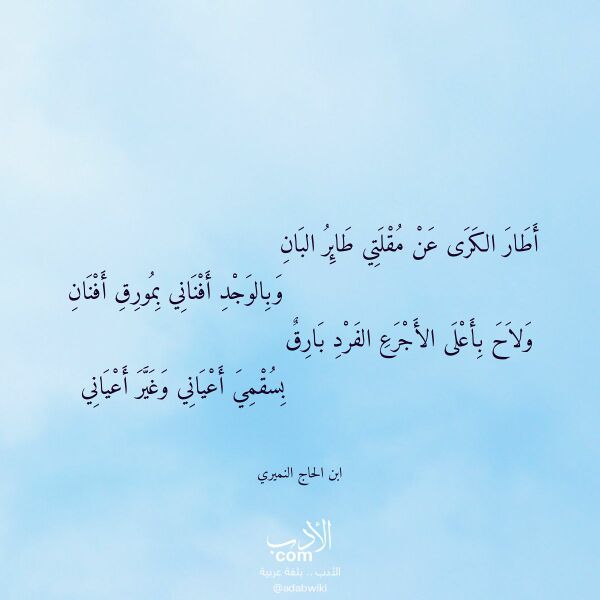 أَطَارَ الكَرَى عَنْ مُقْلَتِي طَائِرُ البَانِ
وَبِالوَجْدِ أَفْنَانِي بِمُورِقِ أَفْنَانِ
وَلاَحَ بِأَعْلَى الأَجْرَعِ الفَرْدِ بَارِقٌ
بِسُقْمِيَ أَعْيَانِي وَغَيَّرَ أَعْيَانِي
ابن الحاج النميري
الأدب
com
الأدب .. بلغة عربية
@adabwiki